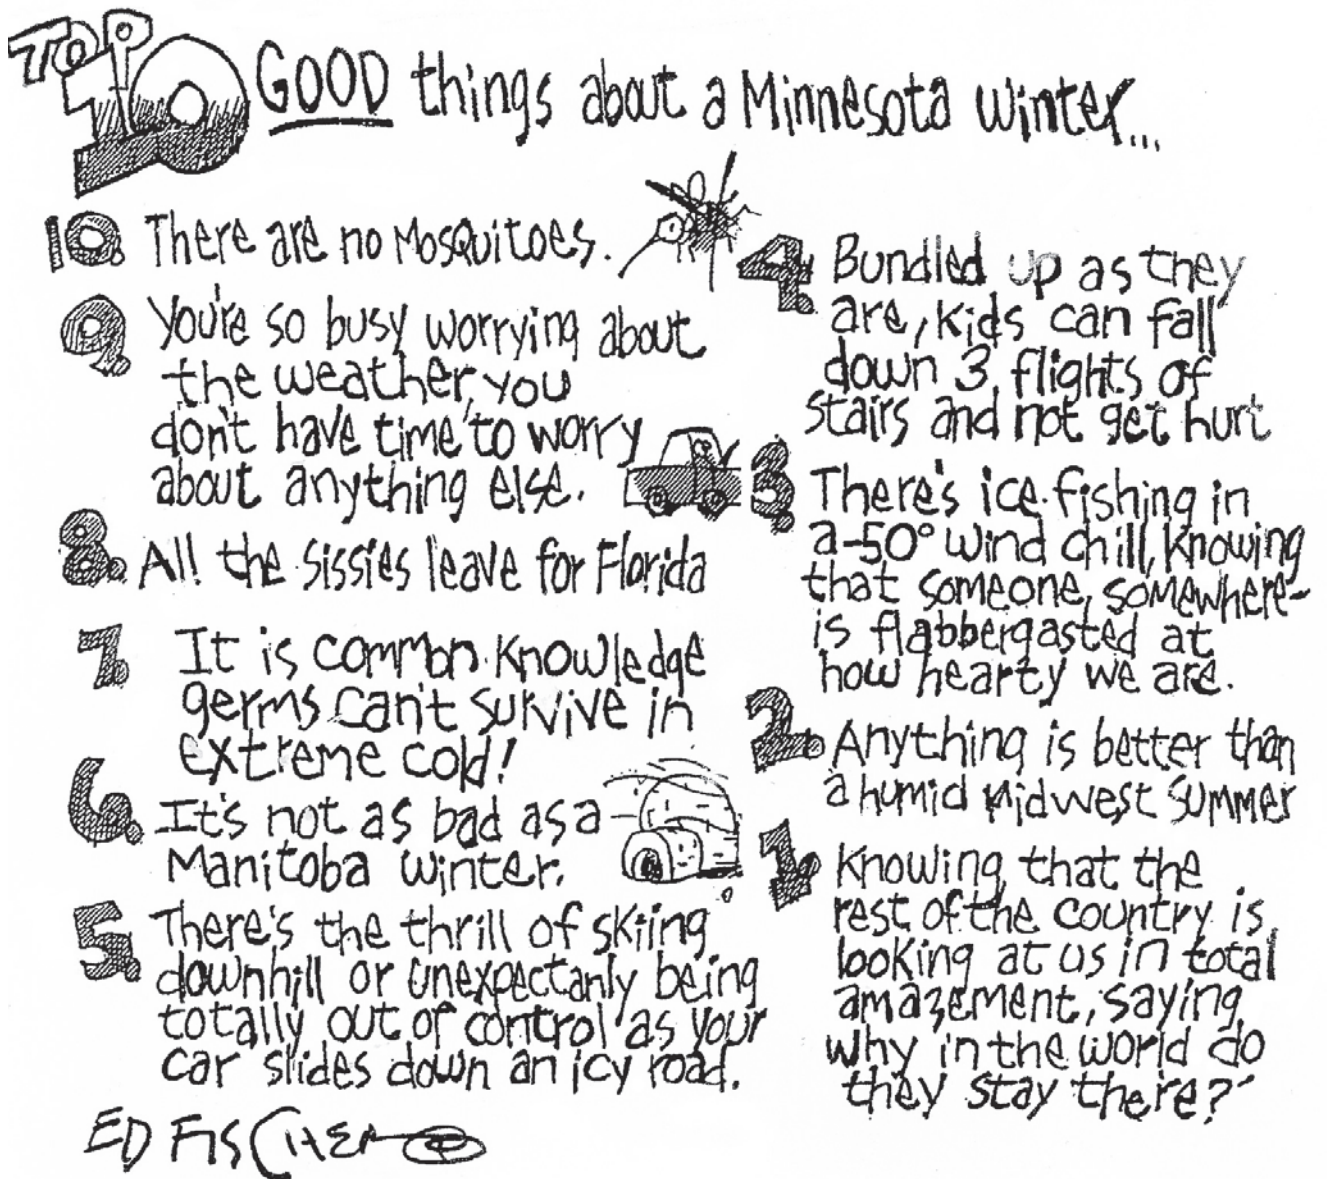 TOP 10 GOOD things about a Minnesota winter...
10. There are no Mosquitoes.
9. You're so busy worrying about
the weather, you
don't have time to worry
about anything else.
8. All the sissies leave for Florida
7. It is common knowledge
germs can't survive in
extreme cold!
6. It's not as bad as a
Manitoba winter.
5. There's the thrill of skiing
downhill or unexpectanly being
totally out of control as your
car slides down an icy road.
4. Bundled up as they
are, kids can fall
down 3 flights of
stairs and not get hurt
3. There's ice fishing in
a -50° wind chill, knowing
that someone, somewhere-
is flabbergasted at
how hearty we are.
2. Anything is better than
a humid Midwest summer
1. Knowing that the
rest of the country is
looking at us in total
amazement, saying
why in the world do
they stay there?"
ED FISCHER